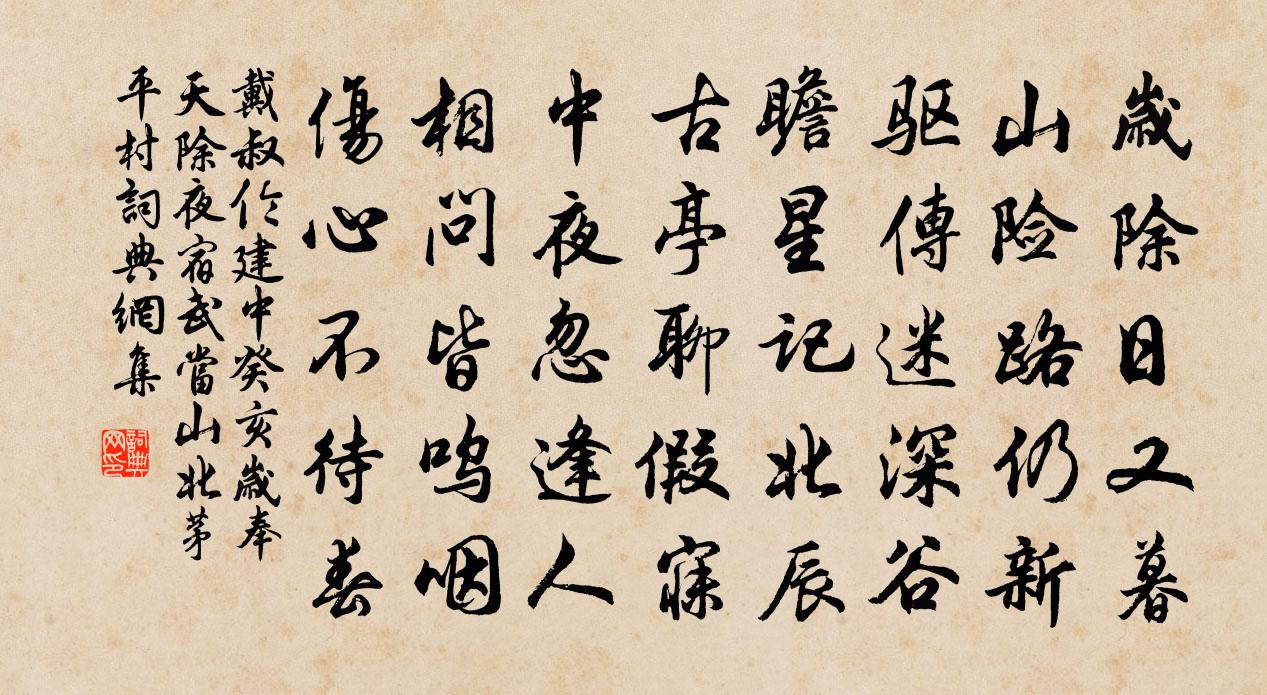 歲除日又暮
山险路仍新
驱傳迷深谷
瞻星记北辰
古亭聊假寐
中夜忽逢人
相问皆鸣咽
傷心不待春
戴叔伦建中癸亥歲奉
天除夜宿武當山北茅
平村詞典網集
詞典
网印